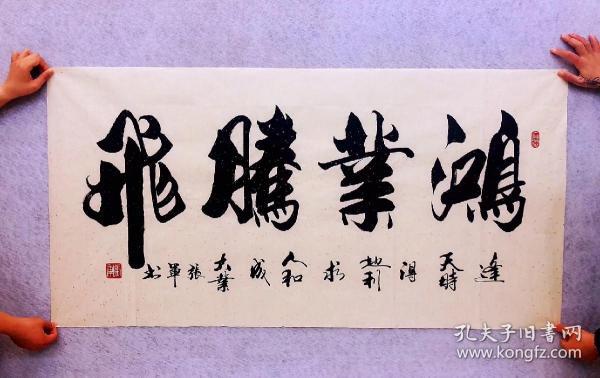 鴻業騰飛
逢天時得地利求人和成大業張軍書
孔夫子旧书网
www.kongfz.com